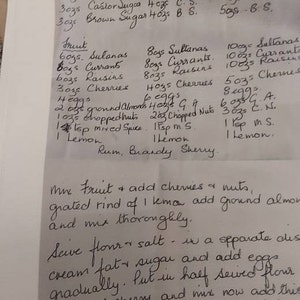 3ozs Castor Sugar 4ozs C.S.
3ozs Brown Sugar 4ozs B.S. 5ozs B.S.
Fruit
6ozs. Sultanas 8ozs Sultanas 10ozs Sultanas
6ozs Currants 8ozs Currants 10ozs Currants
6ozs Raisins 8ozs Raisins 10ozs Raisins
3ozs Cherries 4ozs Cherries 5ozs Cherries
4 eggs 6 eggs 8 eggs.
2ozs ground Almonds 4ozs G.A. 6ozs G.A.
1ozs chopped Nuts 2ozs Chopped Nuts 3ozs C.N.
tsp Mixed Spice 1 tsp M.S. 1 tsp M.S
1 Lemon 1 Lemon 1 Lemon.
Rum, Brandy Sherry.
Mix Fruit + add cherries + nuts,
grated rind of 1 lemon add ground almonds
and mix thoroughly.
Seive flour + salt - in a separate
cream fat + sugar and add eggs
gradually. Put in half seived flour
sherry and mix now add this